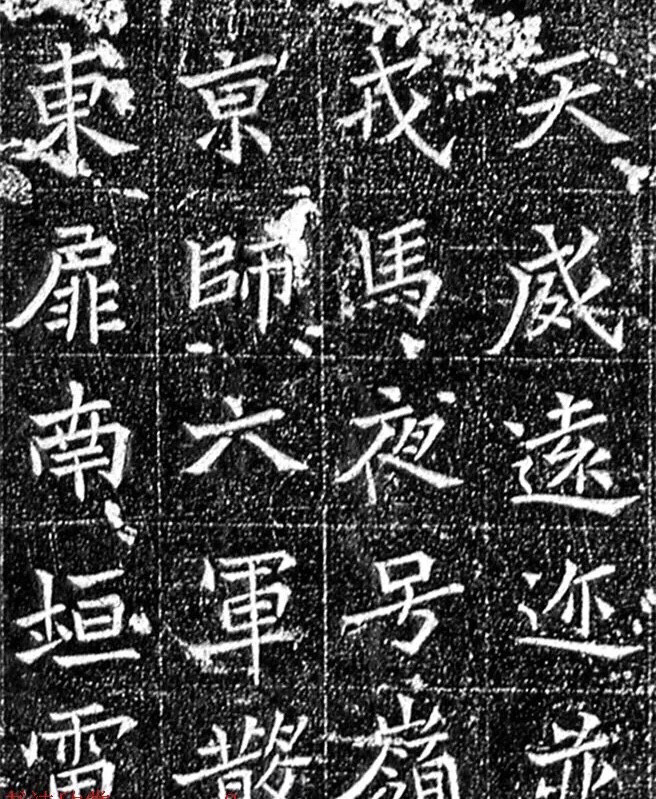 天威遠迩
戎馬夜号嶺
亰師六軍散
東扉南垣雷